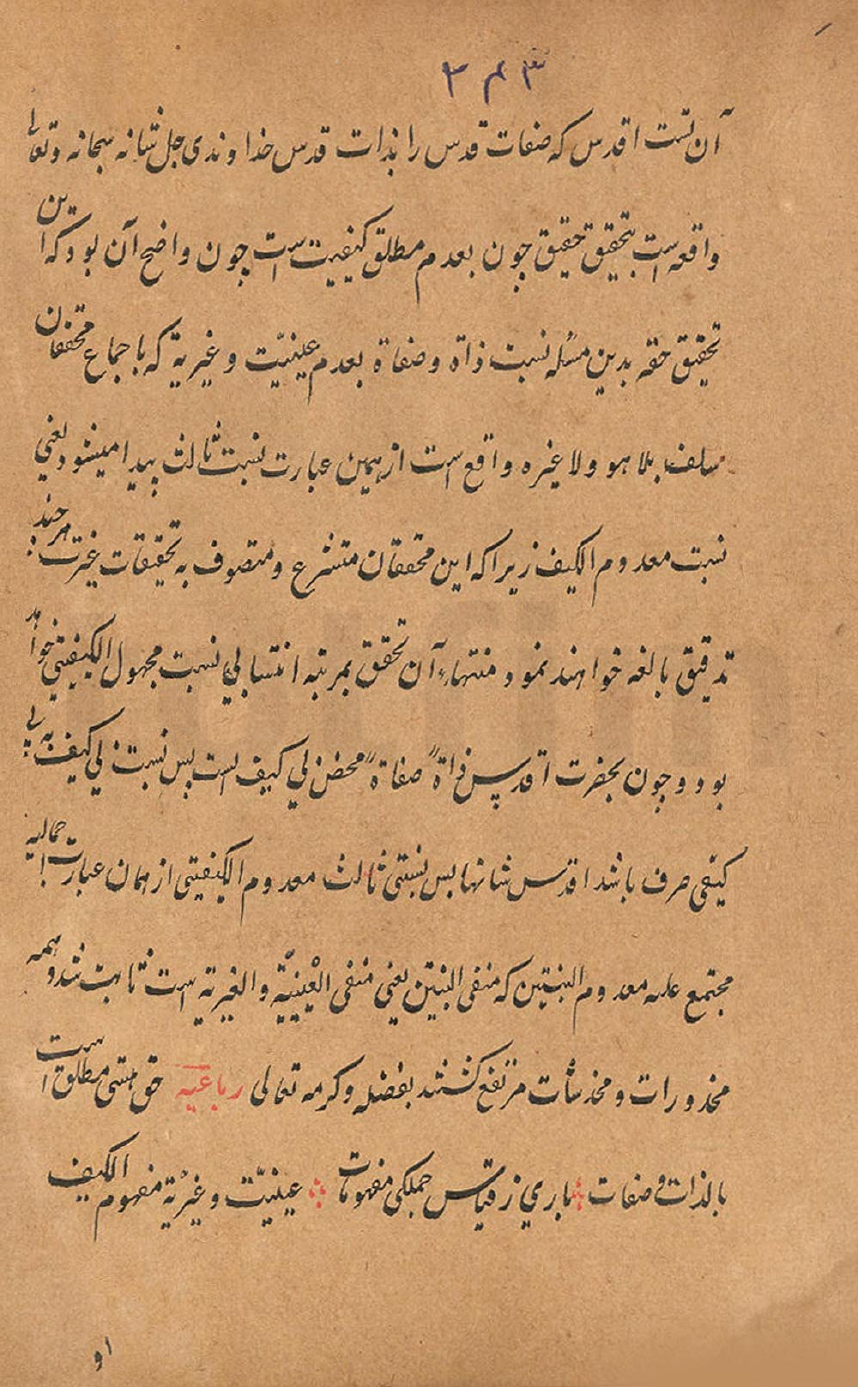 ۳۴۲
آن نسبت اقدس که صفات قدس را بذات قدس خداوندی جل شانه سبحانه وتعالی
واقعه است بتحقیق حقیق چون بعدم مطلق کیفیت است چون واضح آن بود که این
تحقیق حقه بدین مسئله نسبت ذاة وصفاة بعدم عینیّت وغیریة که باجماع محققان
سلف بلا هو ولا غیره واقع است از همین عبارت نسبت ثالث پیدا میشود یعنی
نسبت معدوم الکیف زیرا که این محققان متشرع ومتصوف به تحقیقات هرچند
تدقیق بالغه خواهند نمود منتهاء آن تحقق بمرتبه انتسابی نسبت مجهول الکیفیتی خواهد
بود وچون بحضرت اقدس ذاةً صفاةً محض بی کیف است پس نسبت بی کیف به بی
کیفی صرف باشد اقدس شانها پس نسبتی ثالث معدوم الکیفیتی از همان عبارت اجمالیه
مجتمع علیه معدوم النسبتین که منفی النسبتین یعنی منفی العْینیّة والغیریة است ثابت شد وهمه
محذورات ومخدشات مرتفع گشتند بفضله وکرمه تعالی رباعیه حق هستی مطلق است
بالذات وصفات باری ز قیاس جملکی مفهومات عینیّت وغیریة مفهوم الکیف
او